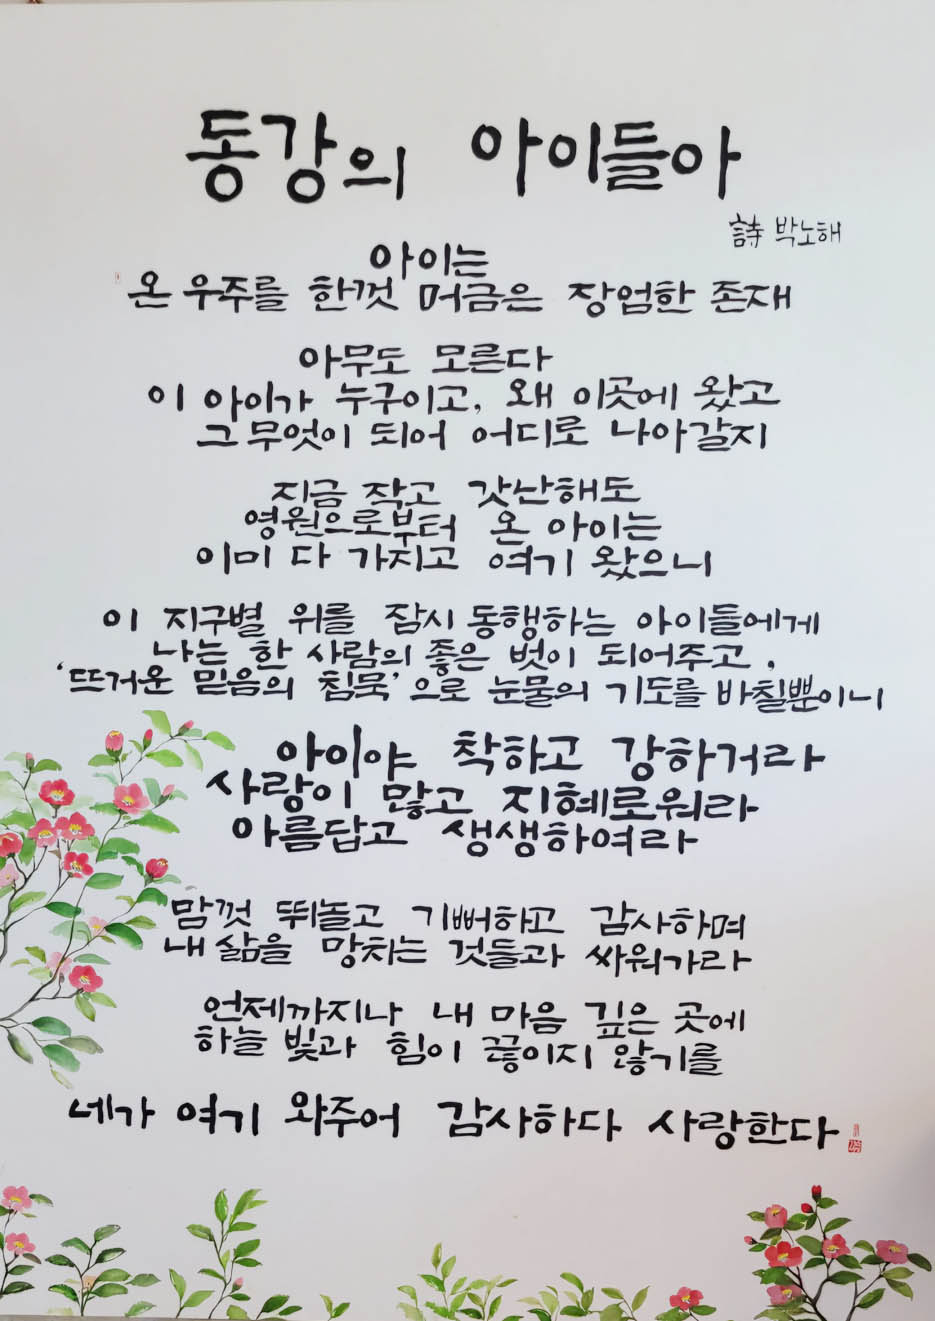 동강의 아이들아
詩 박노해
아이는
온 우주를 한껏 머금은 장엄한 존재
아무도 모른다
이 아이가 누구이고, 왜 이곳에 왔고
그 무엇이 되어 어디로 나아갈지
지금 작고 갓난해도
영원으로부터 온 아이는
이미 다 가지고 여기 왔으니
이 지구별 위를 잠시 동행하는 아이들에게
나는 한 사람의 좋은 벗이 되어주고,
'뜨거운 믿음의 침묵'으로 눈물의 기도를 바칠뿐이니
아이야 착하고 강하거라
사랑이 많고 지혜로워라
아름답고 생생하여라
맘껏 뛰놀고 기뻐하고 감사하며
내 삶을 망치는 것들과 싸워가라
언제까지나 내 마음 깊은 곳에
하늘 빛과 힘이 끊이지 않기를
네가 여기 와주어 감사하다 사랑한다